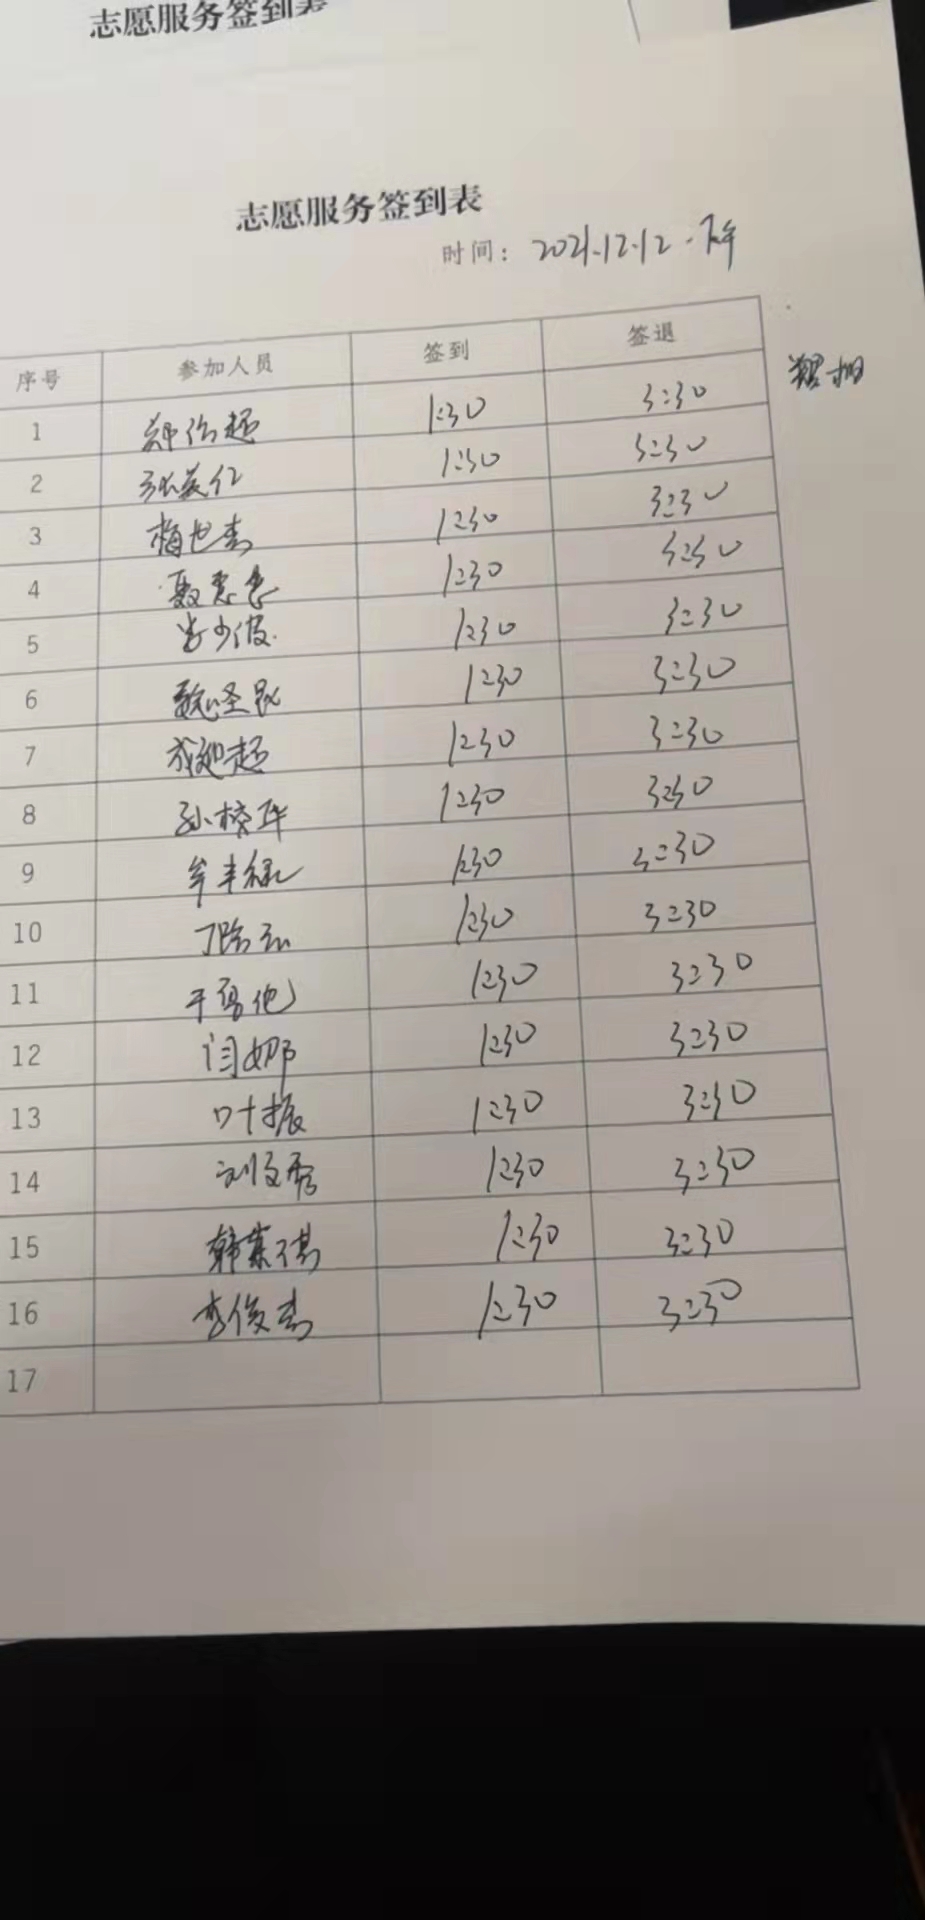 志愿服务签到表
志愿服务签到表
时间：2021.12.12.下午
序号 参加人员 签到 签退
1 1:30 3:30
2 1:30 3:30
3 梅世杰 1:30 3:30
4 聂惠惠 1:30 3:30
5 1:30 3:30
6 魏圣 1:30 3:30
7 成迎超 1:30 3:30
8 孙校环 1:30 3:30
9 牟丰禄 1:30 3:30
10 丁 1:30 3:30
11 1:30 3:30
12 闫娜 1:30 3:30
13 叶振 1:30 3:30
14 刘文秀 1:30 3:30
15 韩棋 1:30 3:30
16 李俊杰 1:30 3:30
17